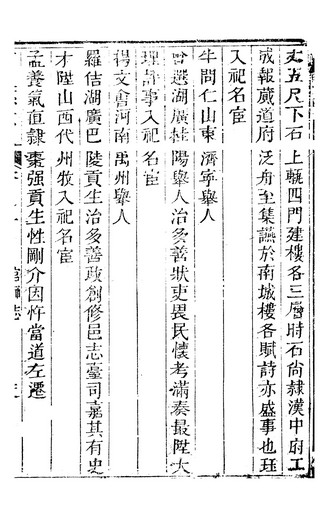 丈五尺下石上甎四門建樓各三層時石尚隸漢中府工
成報蕆道府泛舟至集讌於南城樓各賦詩亦盛事也珏
入祀名宦
牛問仁山東濟寧舉人
曾選湖廣桂陽舉人治多善狀吏畏民懷考滿奏最陞大
理評事入祀名宦
楊文會河南禹州舉人
羅佶湖廣巴陵貢生治多善政創修邑志臺司嘉其有史
才陞山西代州牧入祀名宦
孟養氣直隸棗强貢生性剛介因忤當道左遷
官師志